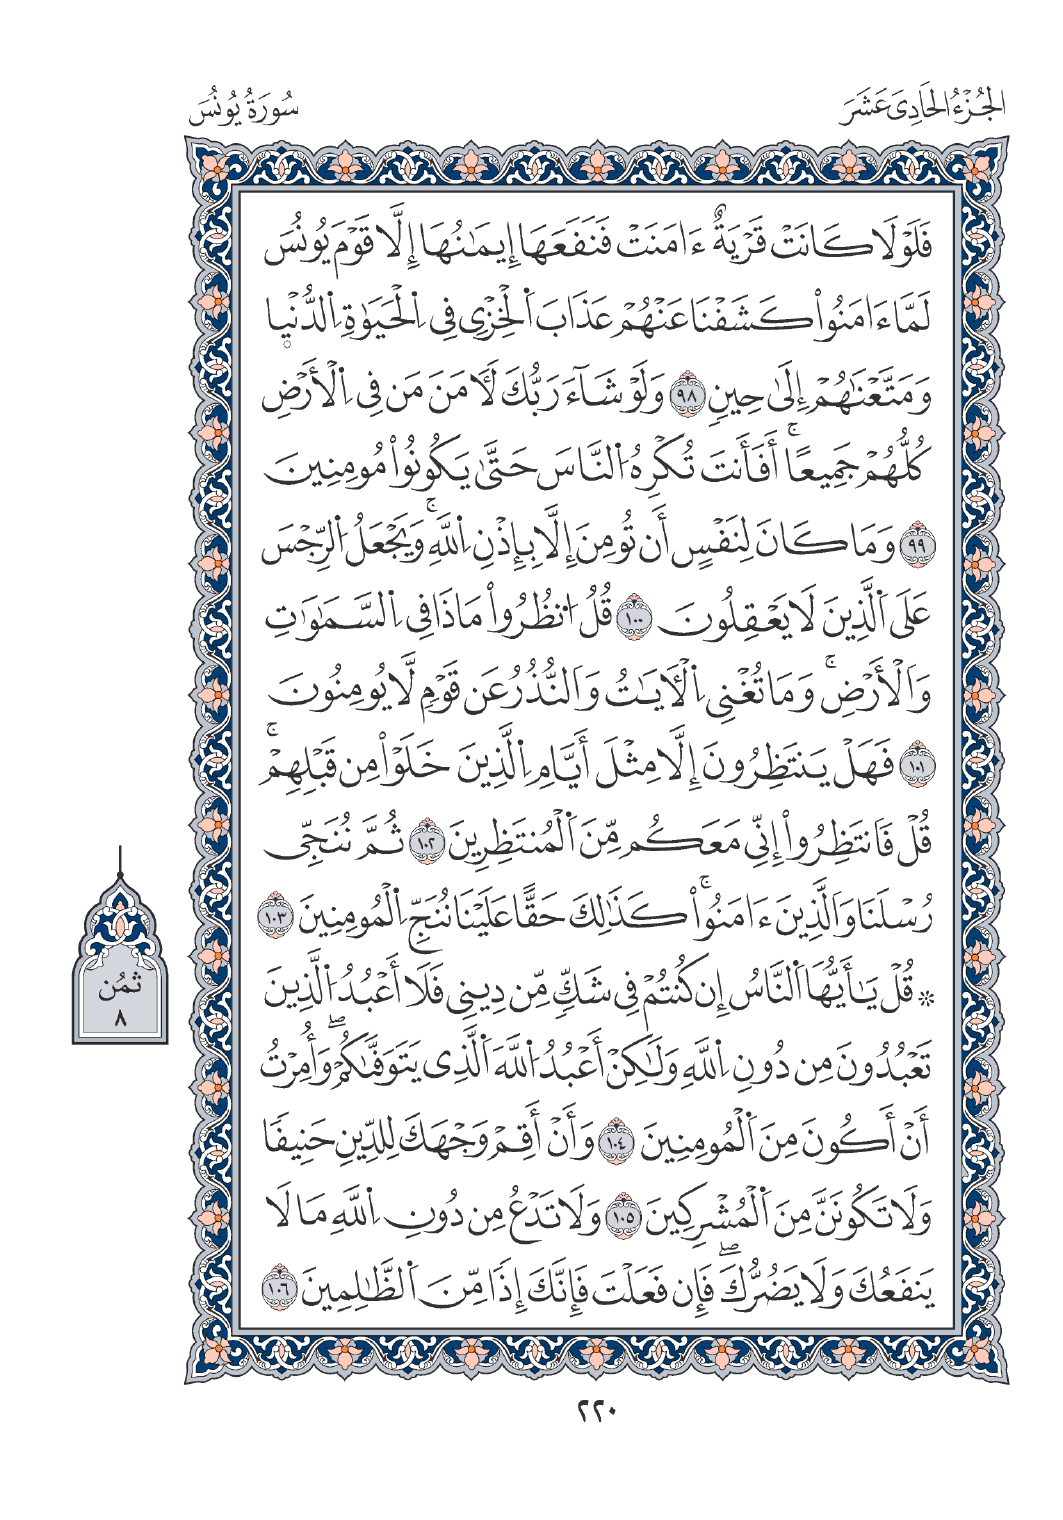 الجُزْءُ الحَادِىَ عَشَرَ
سُورَةُ يُونُسَ
فَلَوْلَا كَانَتْ قَرْيَةٌ ءَامَنَتْ فَنَفَعَهَا إِيمَٰنُهَا إِلَّا قَوْمَ يُونُسَ
لَمَّا ءَامَنُواْ كَشَفْنَا عَنْهُمْ عَذَابَ اَ۬لْخِزْىِ فِى اِ۬لْحَيَوٰةِ اِ۬لدُّنْي۪ا
وَمَتَّعْنَٰهُمْ إِلَىٰ حِينٍ ٩٨ وَلَوْ شَآءَ رَبُّكَ لَأٓمَنَ مَن فِى اِ۬لْأَرْضِ
كُلُّهُمْ جَمِيعًاۚ أَفَأَنتَ تُكْرِهُ اُ۬لنَّاسَ حَتَّىٰ يَكُونُواْ مُومِنِينَ
٩٩ وَمَا كَانَ لِنَفْسٍ أَن تُومِنَ إِلَّا بِإِذْنِ اِ۬للَّهِۚ وَيَجْعَلُ اُ۬لرِّجْسَ
عَلَى اَ۬لَّذِينَ لَا يَعْقِلُونَ ١٠٠ قُلُ اُ۟نظُرُواْ مَاذَا فِى اِ۬لسَّمَٰوَٰتِ
وَالْأَرْضِۚ وَمَا تُغْنِى اِ۬لْأٓيَٰتُ وَالنُّذُرُ عَن قَوْمٍ لَّا يُومِنُونَ
١٠١ فَهَلْ يَنتَظِرُونَ إِلَّا مِثْلَ أَيَّامِ اِ۬لَّذِينَ خَلَوْاْ مِن قَبْلِهِمْۚ
قُلْ فَانتَظِرُواْ إِنِّى مَعَكُم مِّنَ اَ۬لْمُنتَظِرِينَ ١٠٢ ثُمَّ نُنَجِّى
رُسْلَنَا وَالَّذِينَ ءَامَنُواْۚ كَذَٰلِكَ حَقًّا عَلَيْنَا نُنَجِّ اِ۬لْمُومِنِينَ ١٠٣
۞ قُلْ يَٰأَيُّهَا اَ۬لنَّاسُ إِن كُنتُمْ فِى شَكٍّ مِّن دِينِى فَلَا أَعْبُدُ اُ۬لَّذِينَ
تَعْبُدُونَ مِن دُونِ اِ۬للَّهِ وَلَٰكِنْ أَعْبُدُ اُ۬للَّهَ اَ۬لَّذِى يَتَوَفَّىٰكُمْۖ وَأُمِرْتُ
أَنْ أَكُونَ مِنَ اَ۬لْمُومِنِينَ ١٠٤ وَأَنْ أَقِمْ وَجْهَكَ لِلدِّينِ حَنِيفًا
وَلَا تَكُونَنَّ مِنَ اَ۬لْمُشْرِكِينَ ١٠٥ وَلَا تَدْعُ مِن دُونِ اِ۬للَّهِ مَا لَا
يَنفَعُكَ وَلَا يَضُرُّكَۖ فَإِن فَعَلْتَ فَإِنَّكَ إِذًا مِّنَ اَ۬لظَّٰلِمِينَ ١٠٦
ثُمُن
٨
٢٢٠